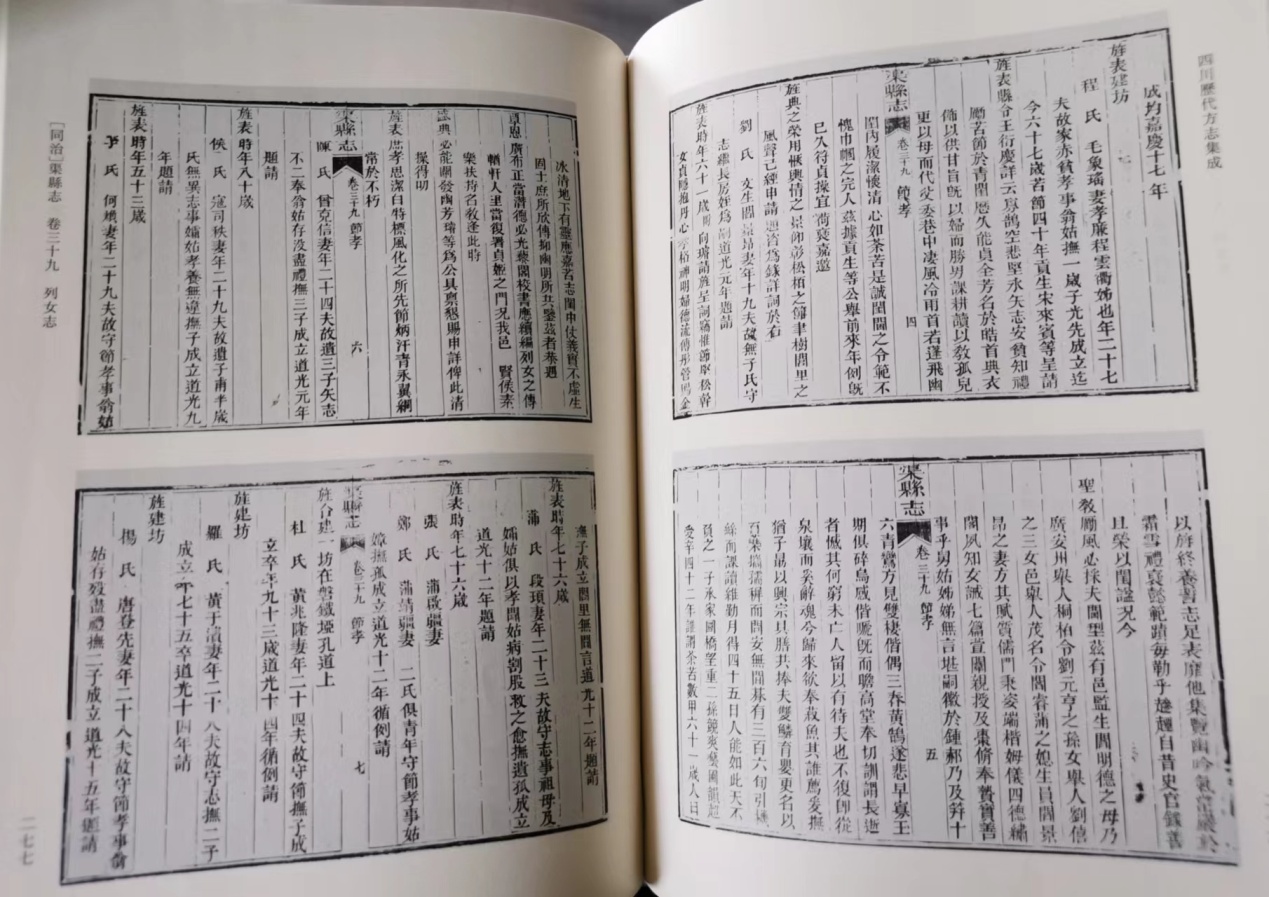 四川歷代方志集成
成均嘉慶十七年
旌表建坊
程氏 毛象瑤妻孝廉程雲衢姊也年二十七
夫故家赤貧孝事翁姑撫一歲子光先成立迄
今六十七歲苦節四十年貢生宋來賓等呈請
旌表縣令王衍慶詳云寡鵠空悲堅永矢志安貧知禮
勵苦節於青閨曆久能貞全芳名於皓首典衣
佈以供甘旨旣以婦而勝男課耕讀以敎孤兒
更以母而代父委巷中凄風冷雨首若蓬飛幽
渠縣志 卷三十九 節孝 四
閨內履潔懷清心如茶苦是誠閨閫之令範不
愧巾幗之完人茲據貢生等公舉前來年例旣
巳久符貞操宜荷褒嘉邀
旌典之榮用愜輿情之
風聲已經申請
劉氏 文生閻景昂妻年十九夫故無子氏守
志繼長房姪為嗣道光元年題請
旌表時年六十一歲
以旃終養書志足表靡他集覽幽吟氣
霜雪禮
且榮以閨諡況今
聖敎勵風必採夫閫型茲有邑監生閻明德之母乃
廣安州舉人桐柏令劉元亨之孫女舉人劉僖
之三女邑舉人茂名令閻睿蒲之媳生員閻景
昂之妻方其賦質儒門秉姿端楷姆儀四德繡
閣夙知女誡七篇萱闈親授及棗脩奉贄賓善
事乎舅姑姊娣無言堪嗣徽於鍾郝乃及笄十
渠縣志 卷三十九 節孝 五
六青鸞方見雙棲偕偶三春黃鵠遂悲早寡王
期俱碎烏戚偕
者慽其何窮未亡人留以有待夫也不復卽從
泉壤而奚辭魂兮歸來欲奉菽魚其誰薦爰撫
猶子
絲而課讀維勤月得四十五日人能如此天不
負之一子承家圜橋望重二孫
愛辛四十二年誰謂荼苦數甲六十一歲人曰
冰清地下有靈應嘉苦志閨中仗義實不虛生
固士庶所欣傳抑幽明所共鑒茲者恭遇
覃恩廣布正當潛德必光藜閣校書應續編列女之傳
輶軒人里當復署貞姬之門況我邑 賢侯素
樂扶持名敎逢此時
盛典必能闡發幽芳瑋等為公具稟懇賜申詳俾此清
操得叨
旌表庶孝思潔白特標風化之所先節炳汗青永翼綱
常於不朽
渠縣志 卷三十九 節孝 六
陳氏 曾克信妻年二十四夫故遺三子矢志
不二奉翁姑存没盡禮撫三子成立道光元年
題請
旌表時年八十歲
侯氏 寇司秩妻年二十九夫故遺子甫半歲
氏無異志事孀姑孝養無違撫子成立道光九
年題請
旌表時年五十三歲
氏 何 妻年二十九夫故守節孝事翁姑
撫子成立閭里無閒言道光十二年題請
旌表時年七十六歲
蒲氏 段項妻年二十三夫故守志事祖母及
孀姑俱以孝聞姑病割股救之愈撫遺孤成立
道光十二年題請
旌表時年七十六歲
張氏 蒲啟疆妻
鄭氏 蒲靖疆妻 二氏俱青年守節孝事姑
嫜撫孤成立道光十二年循例請
渠縣志 卷三十九 節孝 七
旌合建一坊在盤鐵埡孔道上
杜氏 黃兆隆妻年二十四夫故守節撫子成
立卒年九十三歲道光十四年循例請
旌建坊
羅氏 黃于漬妻年二十八夫故守志撫二子
成立年七十五卒道光十四年請
旌建坊
楊氏 唐登先妻年二十八夫故守節孝事翁
姑存歿盡禮撫二子成立道光十五年題請
〔同治〕渠縣志 卷三十九 列女志
二七七